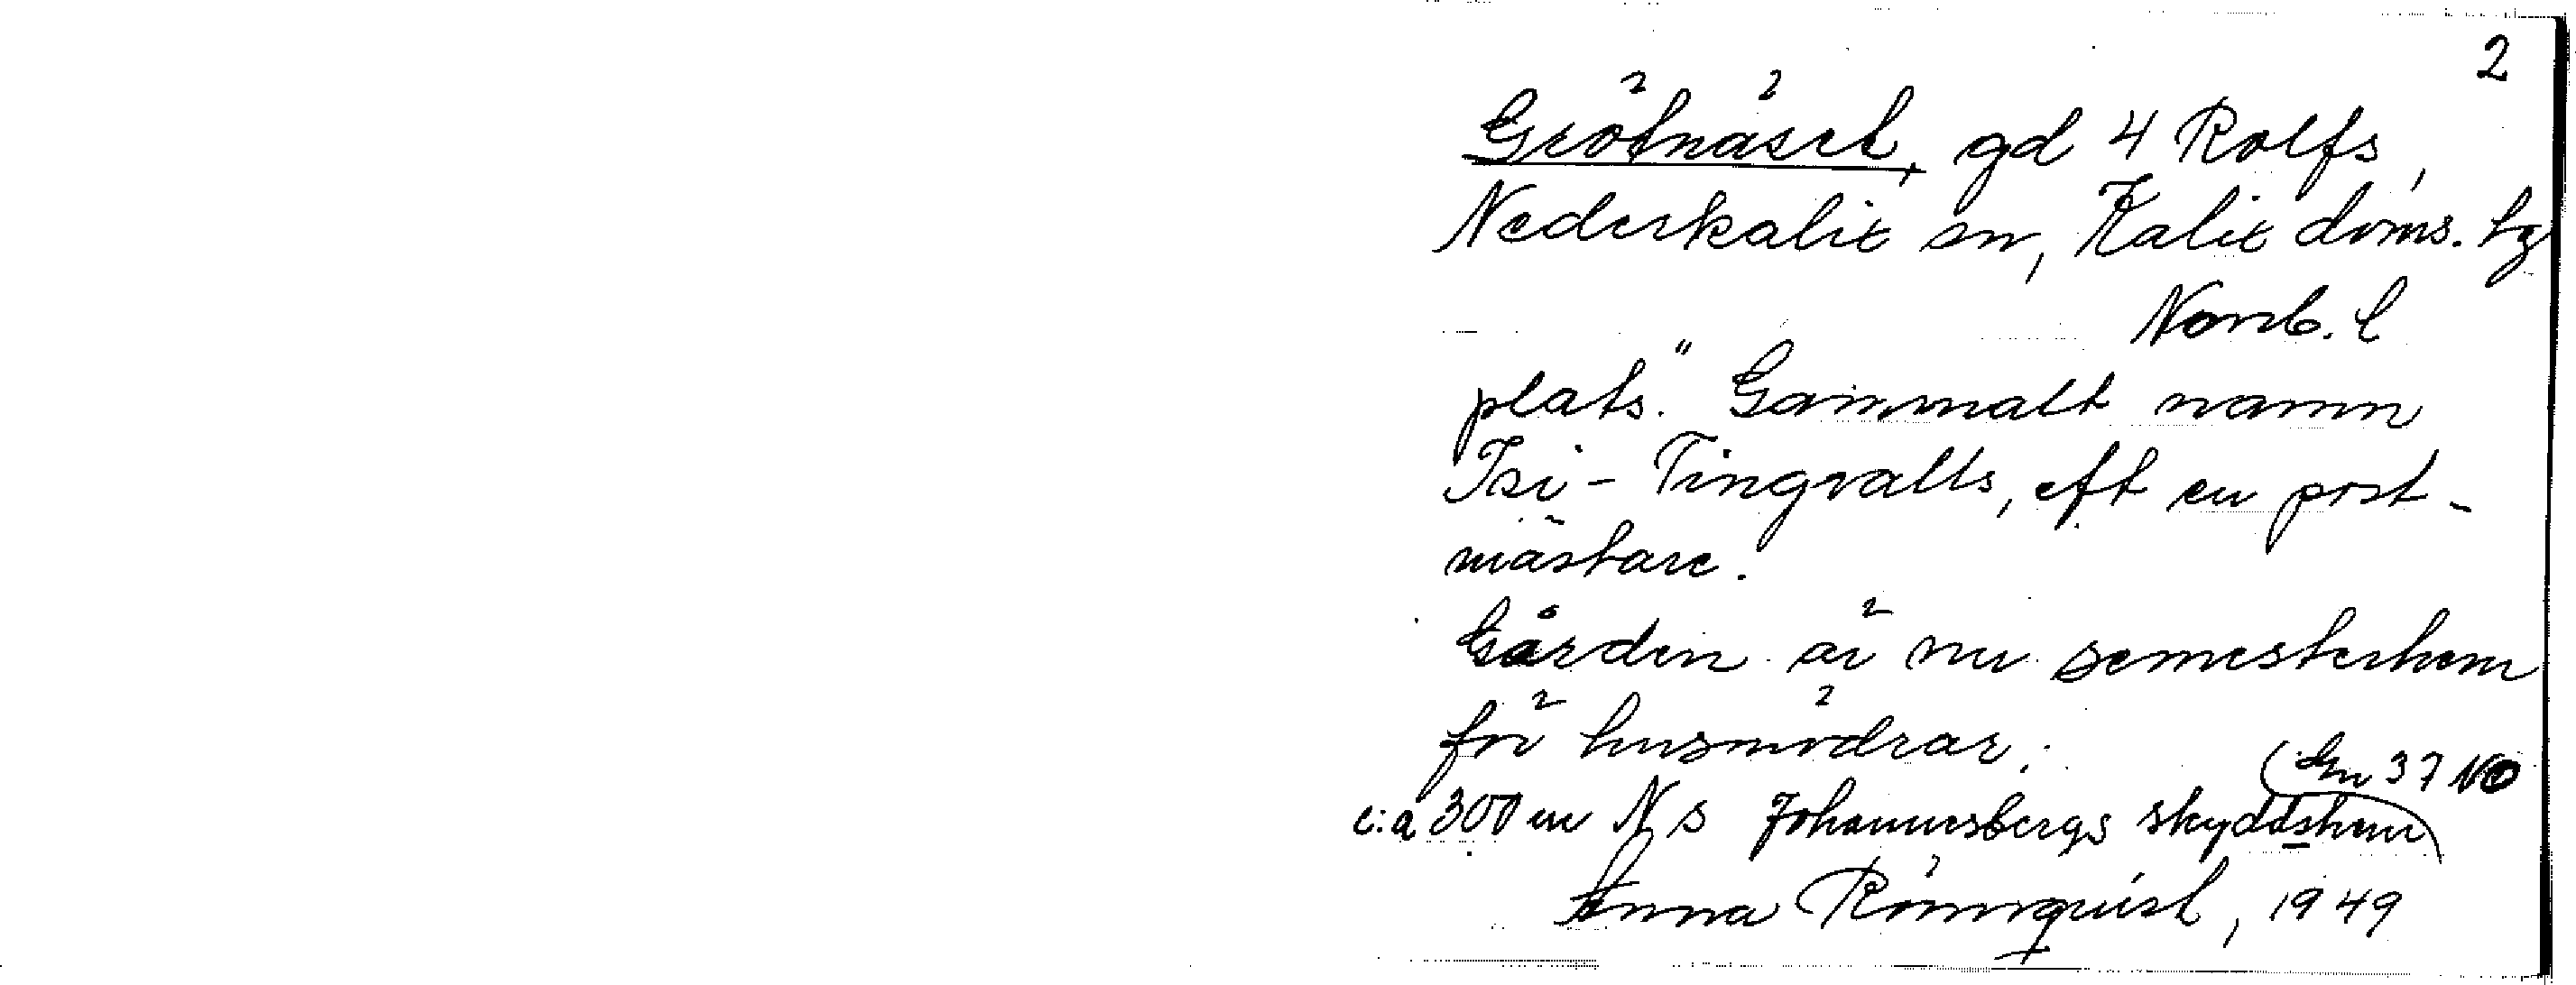 2
Grötnäset, gd 4 Rolfs,
Nederkalix sn, Kalix doms. lg
Norrb. l
plats." Gammalt namn
Isi-Tingvalls, eft en post-
mästare.
Gården är nu semesterhem
för husmödrar.
(En 37 NO
c:a 300 m N s Johannesbergs skyddshem
Anna Rönnquist, 1949